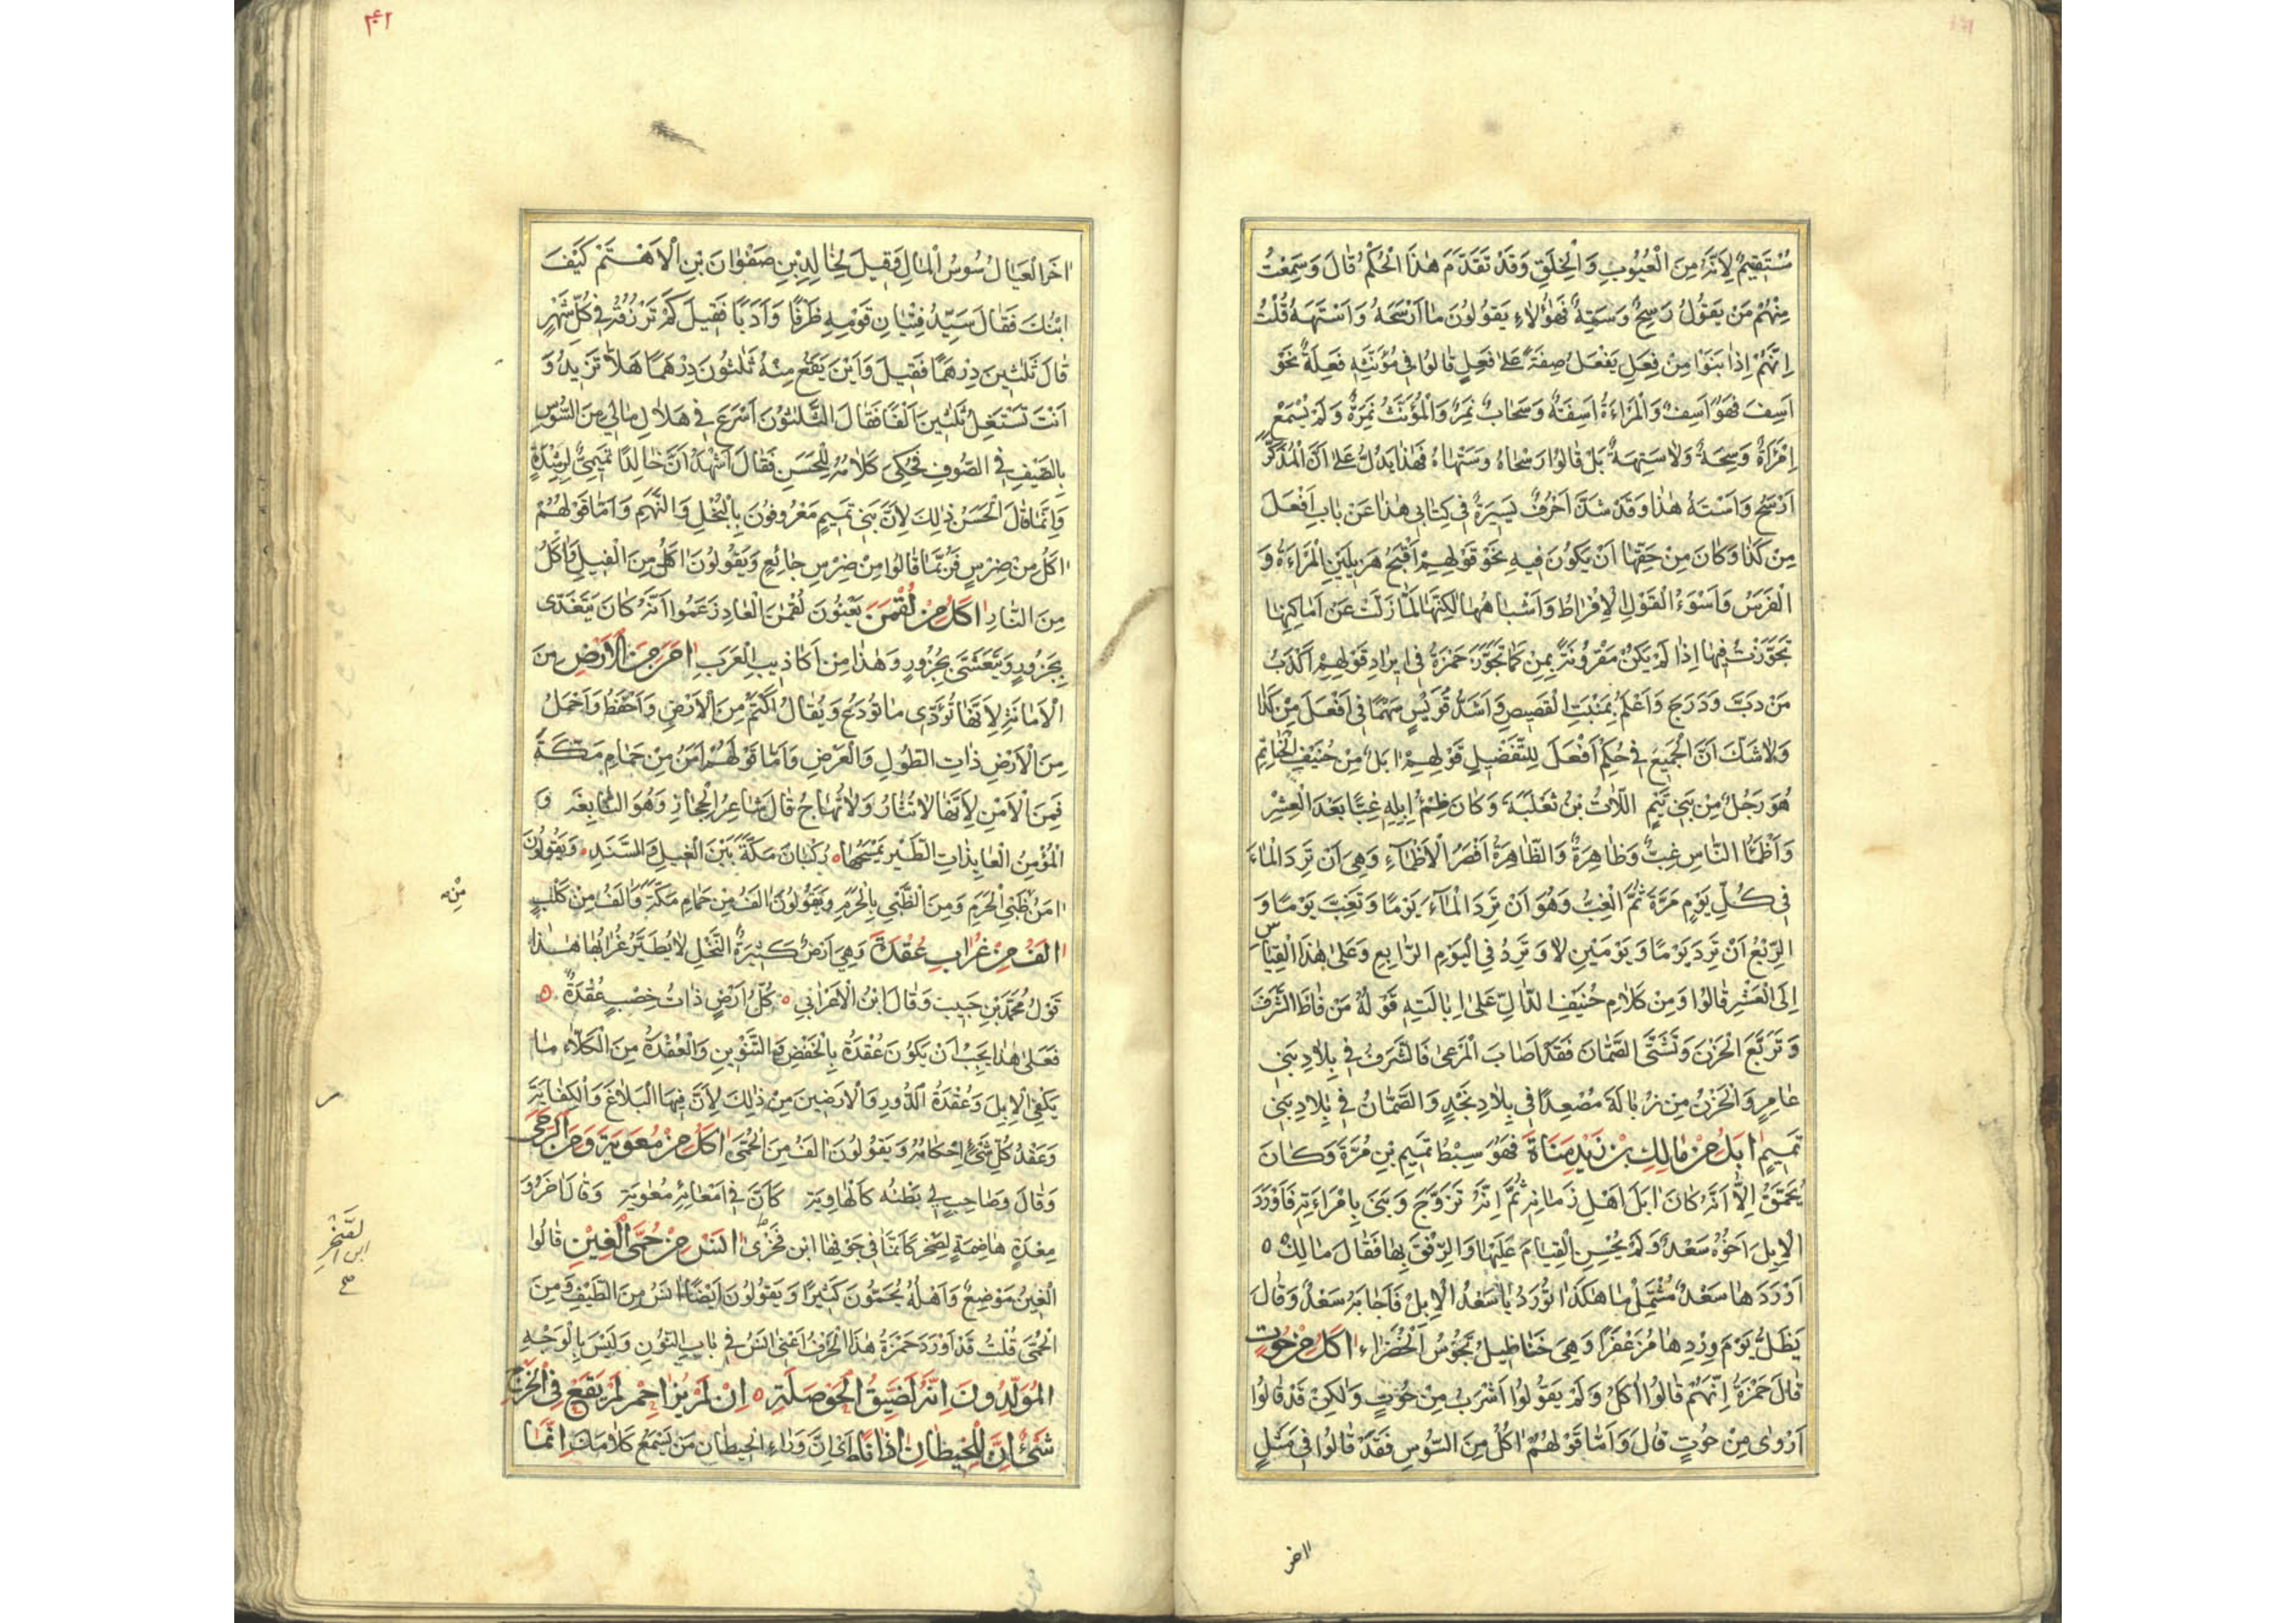 مُسْتَقِيمٌ لِاَنَّهُ مِنَ الْعُيُوبِ وَالْخِلَقِ وَقَدْ تَقَدَّمَ هٰذَا الْحُكْمُ قَالَ وَسَمِعْتُ
مِنْهُمْ مَنْ يَقُولُ رَسِحٌ وَسَتِهٌ فَهٰؤُلَاءِ يَقُولُونَ مَا اَرْسَحَهُ وَاَسْتَهَهُ قُلْتُ
اِنَّهُمْ اِذَا بَنَوْا مِنْ فَعِلَ يَفْعَلُ صِفَةً عَلَى فَعِلٍ قَالُوا فِي مُؤَنَّثِهِ فَعِلَةٌ نَحْوَ
اَسِفَ فَهُوَ اَسِفٌ وَالْمَرْاَةُ اَسِفَةٌ وَسَحَابٌ نَمِرٌ وَالْمُؤَنَّثُ نَمِرَةٌ وَلَمْ يُسْمَعْ
اِمْرَاَةٌ رَسِحَةٌ وَلَا سَتِهَةٌ بَلْ قَالُوا رَسْحَاءُ وَسَتْهَاءُ فَهٰذَا يَدُلُّ عَلَى اَنَّ الْمُذَكَّرَ
اَرْسَحُ وَاَسْتَهُ هٰذَا وَقَدْ شَذَّ اَحْرُفٌ يَسِيرَةٌ فِي كِتَابِي هٰذَا عَنْ بَابِ اَفْعَلَ
مِنْ كَذَا وَكَانَ مِنْ حَقِّهَا اَنْ يَكُونَ فِيهِ نَحْوَ قَوْلِهِمْ اَقْبَحُ هَزِيلَيْنِ الْمَرْاَةُ وَ
الْفَرَسُ وَاَسْوَءُ الْقَوْلِ الْاِفْرَاطُ وَاَشْبَاهُهَا لٰكِنَّهَا لَمَّا زَلَتْ عَنْ اَمَاكِنِهَا
تَجَوَّزْتُ فِيهَا اِذَا لَمْ يَكُنْ مَقْرُونَةً بِمِنْ كَمَا تَجَوَّزَ حَمْزَةُ فِي اِيرَادِ قَوْلِهِمْ اَكْذَبُ
مَنْ دَبَّ وَدَرَجَ وَاَعْلَمُ بِمَنْبِتِ الْقَصِيصِ وَاَشَدُّ قُوَيْسٍ سَهْمًا فِي اَفْعَلَ مِنْ كَذَا
وَلَا شَكَّ اَنَّ الْجَمِيعَ فِي حُكْمِ اَفْعَلَ لِلتَّفْضِيلِ قَوْلِهِمْ اٰبَلُ مِنْ حُنَيْفِ الْحَنَاتِمِ
هُوَ رَجُلٌ مِنْ بَنِي تَيْمِ اللَّاتِ بْنِ ثَعْلَبَةَ وَكَانَ ظِمْءُ اِبِلِهِ غِبًّا بَعْدَ الْعِشْرِ
وَاَظْمَاءُ النَّاسِ غِبٌّ وَظَاهِرَةٌ وَالظَّاهِرَةُ اَقْصَرُ الْاَظْمَاءِ وَهِيَ اَنْ تَرِدَ الْمَاءَ
فِي كُلِّ يَوْمٍ مَرَّةً ثُمَّ الْغِبُّ وَهُوَ اَنْ تَرِدَ الْمَاءَ يَوْمًا وَتَغِبَّ يَوْمًا وَ
الرِّبْعُ اَنْ تَرِدَ يَوْمًا وَيَوْمَيْنِ لَا وَتَرِدُ فِي الْيَوْمِ الرَّابِعِ وَعَلَى هٰذَا الْقِيَاسِ
اِلَى الْعَشْرِ قَالُوا وَمِنْ كَلَامِ حُنَيْفِ الدَّالِّ عَلَى اِبَالَتِهِ قَوْلُهُ مَنْ قَاظَ الشَّرَفَ
وَتَرَبَّعَ الْحَزْنَ وَتَشَتَّى الصَّمَّانَ فَقَدْ اَصَابَ الْمَرْعٰى فَالشَّرَفُ فِي بِلَادِ بَنِي
عَامِرٍ وَالْحَزْنُ مِنْ زُبَالَةَ مُصْعِدًا فِي بِلَادِ نَجْدٍ وَالصَّمَّانُ فِي بِلَادِ بَنِي
تَمِيمٍ اٰبَلُ مِنْ مَالِكِ بْنِ زَيْدِ مَنَاةَ فَهُوَ سِبْطُ تَمِيمِ بْنِ مُرَّةَ وَكَانَ
يُحَمَّقُ اِلَّا اَنَّهُ كَانَ اٰبَلَ اَهْلِ زَمَانِهِ ثُمَّ اِنَّهُ تَزَوَّجَ وَبَنَى بِامْرَاَتِهِ فَاَوْرَدَ
الْاِبِلَ اَخُوهُ سَعْدٌ وَلَمْ يُحْسِنِ الْقِيَامَ عَلَيْهَا وَالرِّفْقَ بِهَا فَقَالَ مَالِكٌ ه
اَوْرَدَهَا سَعْدٌ مُشْتَمِلْ مَا هٰكَذَا تُورَدُ يَا سَعْدُ الْاِبِلْ فَاَجَابَهُ سَعْدٌ وَقَالَ
يَظَلُّ يَوْمَ وِرْدِهَا مُزَعْفَرًا وَهِيَ خَنَاطِيلُ تَجُوسُ الْخُضَرَاءَ اٰكَلُ مِنْ حُوتٍ
قَالَ حَمْزَةُ اِنَّهُمْ قَالُوا اٰكَلُ وَلَمْ يَقُولُوا اَشْرَبُ مِنْ حُوتٍ وَلٰكِنْ قَدْ قَالُوا
اَرْوٰى مِنْ حُوتٍ قَالَ وَاَمَّا قَوْلُهُمْ اٰكَلُ مِنَ السُّوسِ فَقَدْ قَالُوا فِي مَثَلٍ
اٰخر
۴۱
اٰخَرَ الْعِيَالُ سُوسُ الْمَالِ وَقِيلَ لِخَالِدِ بْنِ صَفْوَانَ بْنِ الْاَهْتَمِ كَيْفَ
ابْنُكَ فَقَالَ سَيِّدُ فِتْيَانِ قَوْمِهِ ظَرْفًا وَاَدَبًا فَقِيلَ كَمْ تَرْزُقُهُ فِي كُلِّ شَهْرٍ
قَالَ ثَلٰثِينَ دِرْهَمًا فَقِيلَ وَاَيْنَ يَقَعُ مِنْهُ ثَلٰثُونَ دِرْهَمًا هَلَّا تَزِيدُهُ وَ
اَنْتَ تَسْتَغِلُّ ثَلٰثِينَ اَلْفًا فَقَالَ الثَّلٰثُونَ اَسْرَعُ فِي هَلَاكِ مَالِي مِنَ السُّوسِ
بِالصَّيْفِ فِي الصُّوفِ فَحُكِيَ كَلَامُهُ لِلْحَسَنِ فَقَالَ اَشْهَدُ اَنَّ خَالِدًا تَمِيمِيٌّ لِرِشْدَةٍ
وَاِنَّمَا قَالَ الْحَسَنُ ذٰلِكَ لِاَنَّ بَنِي تَمِيمٍ مَعْرُوفُونَ بِالْبُخْلِ وَالنَّهَمِ وَاَمَّا قَوْلُهُمْ
اٰكَلُ مِنْ ضِرْسٍ فَرُبَّمَا قَالُوا مِنْ ضِرْسِ جَائِعٍ وَيَقُولُونَ اٰكَلُ مِنَ الْفِيلِ وَاٰكَلُ
مِنَ النَّارِ اٰكَلُ مِنْ لُقْمٰنَ يَعْنُونَ لُقْمٰنَ الْعَادِ زَعَمُوا اَنَّهُ كَانَ يَتَغَدّٰى
بِجَزُورٍ وَيَتَعَشّٰى بِجَزُورٍ وَهٰذَا مِنْ اَكَاذِيبِ الْعَرَبِ اٰمَنُ مِنَ الْاَرْضِ مِنَ
الْاَمَانَةِ لِاَنَّهَا تُؤَدِّى مَا تُودَعُ وَيُقَالُ اَكْتَمُ مِنَ الْاَرْضِ وَاَحْفَظُ وَاَحْمَلُ
مِنَ الْاَرْضِ ذَاتِ الطُّولِ وَالْعَرْضِ وَاَمَّا قَوْلُهُمْ اٰمَنُ مِنْ حَمَامِ مَكَّةَ
فَمِنَ الْاَمْنِ لِاَنَّهَا لَا تُثَارُ وَلَا تُهَاجُ قَالَ شَاعِرُ الْحِجَازِ وَهُوَ النَّابِغَةُ وَ
الْمُؤْمِنُ الْعَائِذَاتِ الطَّيْرِ يَمْسَحُهَا رُكْبَانُ مَكَّةَ بَيْنَ الْغِيلِ وَالسَّنَدِ وَيَقُولُونَ
اٰمَنُ ظَبْيِ الْحَرَمِ وَمِنَ الظَّبْيِ بِالْحَرَمِ وَيَقُولُونَ اٰلَفُ مِنْ حَمَامِ مَكَّةَ وَاٰلَفُ مِنْ كَلْبٍ
مِنْ
اٰلَفُ مِنْ غُرَابِ عُقْدَةَ وَهِيَ اَرْضٌ كَثِيرَةُ النَّخْلِ لَا يُطَيَّرُ غُرَابُهَا هٰذَا
قَوْلُ مُحَمَّدِ بْنِ حَبِيبَ وَقَالَ ابْنُ الْاَعْرَابِي كُلُّ اَرْضٍ ذَاتُ خِصْبٍ عُقْدَةٌ
فَعَلٰى هٰذَا يَجِبُ اَنْ يَكُونَ عُقْدَةُ بِالْخَفْضِ وَالتَّنْوِينِ وَالْعُقْدَةُ مِنَ الْكَلَاءِ مَا
يَكْفِي الْاِبِلَ وَعُقْدَةُ الدُّورِ وَالْاَرَضِينَ مِنْ ذٰلِكَ لِاَنَّ فِيهَا الْبَلَاغَ وَالْكِفَايَةَ
وَعَقْدُ كُلِّ شَيْءٍ اِحْكَامُهُ وَيَقُولُونَ اٰلَفُ مِنَ الْحُمَّى اٰكَلُ مِنْ مُعٰوِيَةَ وَمِنَ الرَّحَى
وَقَالَ وَصَاحِبٍ لِي بَطْنُهُ كَالْهَاوِيَة كَاَنَّ فِي اَمْعَائِهِ مُعٰوِيَة وَقَالَ اٰخَرُ وَ
مِعْدَةٍ هَاضِمَةٍ لِصَخْرِ كَاَنَّمَا فِي جَوْفِهَا ابْنُ فَخْرٰى اٰنَسُ مِنْ حُمَّى الْغِينِ قَالُوا
لصَخْرِ ابن الصَخْرِ صح
الْغِينُ مَوْضِعٌ وَاَهْلُهُ يُحَمُّونَ كَثِيرًا وَيَقُولُونَ اَيْضًا اٰنَسُ مِنَ الطَّيْفِ وَمِنَ
الْحُمَّى قُلْتُ قَدْ اَوْرَدَ حَمْزَةُ هٰذَا الْحَرْفَ اَعْنِي اٰنَسُ فِي بَابِ النُّونِ وَلَيْسَ بِالْوَجْهِ
الْمُوَلَّدُونَ اِنَّهُ لَضَيِّقُ الْحَوْصَلَةِ اِنْ لَمْ يُزَاحِمْ لَمْ يَقَعْ فِي الْخُرْجِ
شَيْءٌ اِنَّ لِلْحِيطَانِ اٰذَانًا اَيْ اِنَّ وَرَاءَ الْحِيطَانِ مَنْ يَسْمَعُ كَلَامَكَ اِنَّمَا